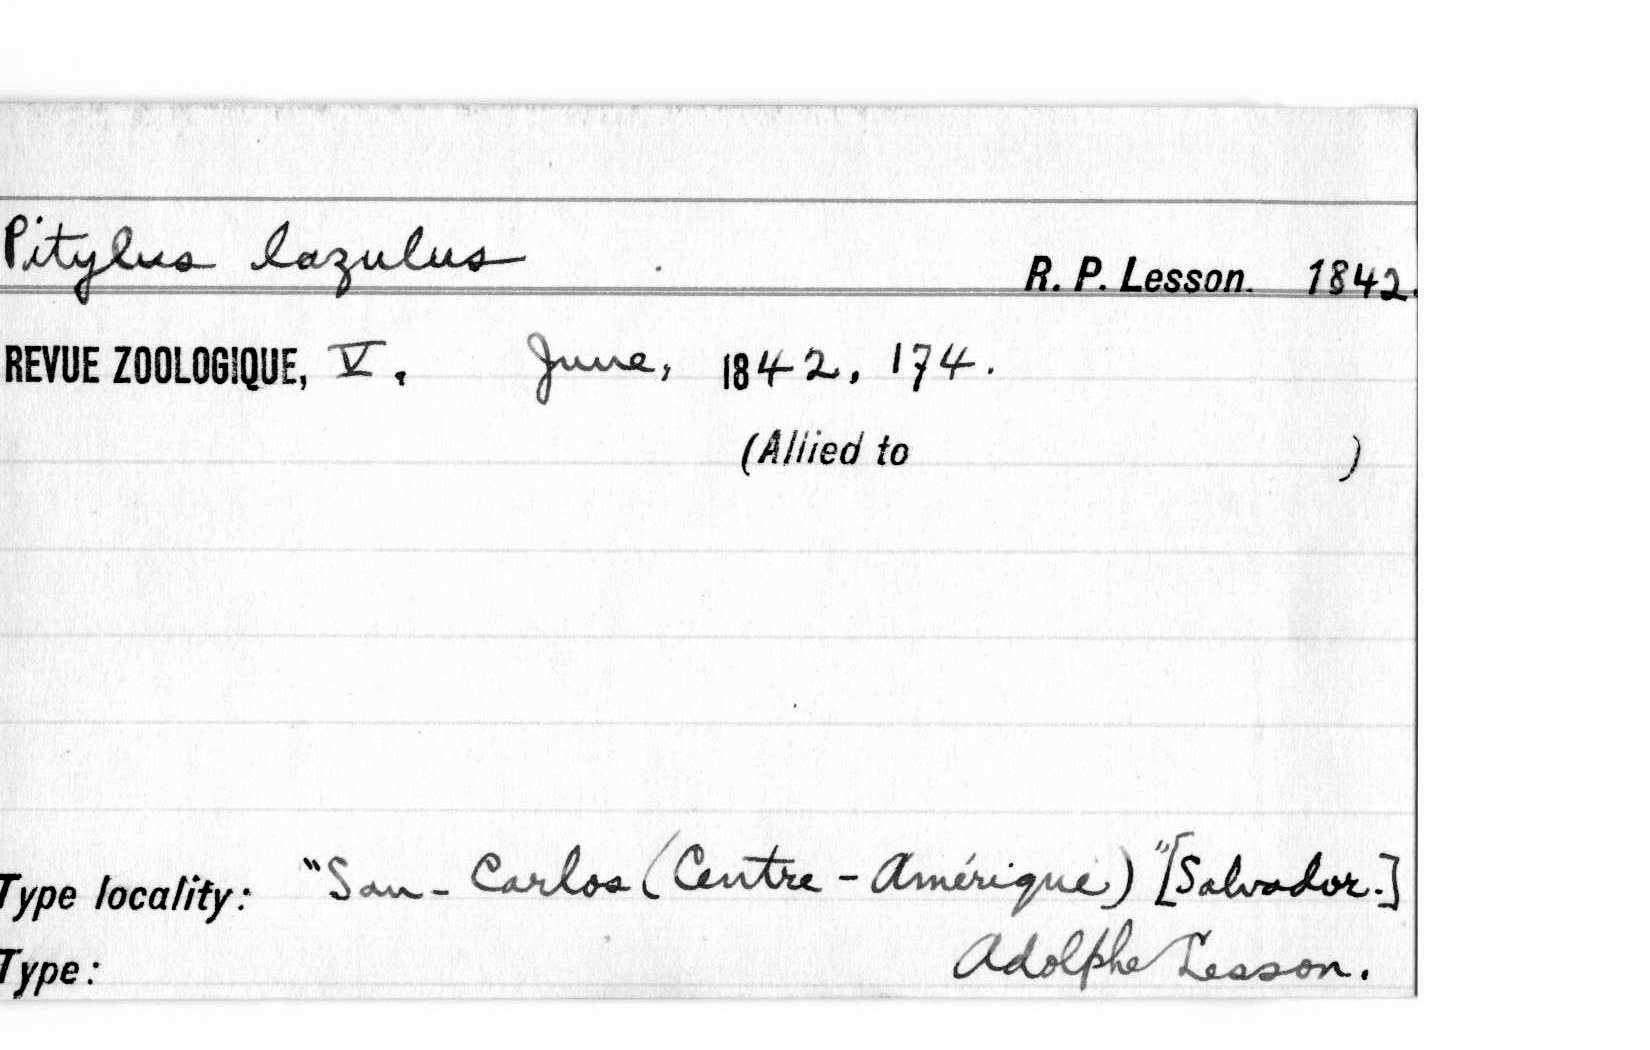 Pitylus lazulus R. P. Lesson. 1842.
REVUE ZOOLOGIQUE, V. June, 1842, 174.
(Allied to )
Type locality: "San-Carlos (Centre-Amérique)" [Salvador.]
Type: Adolphe Lesson.